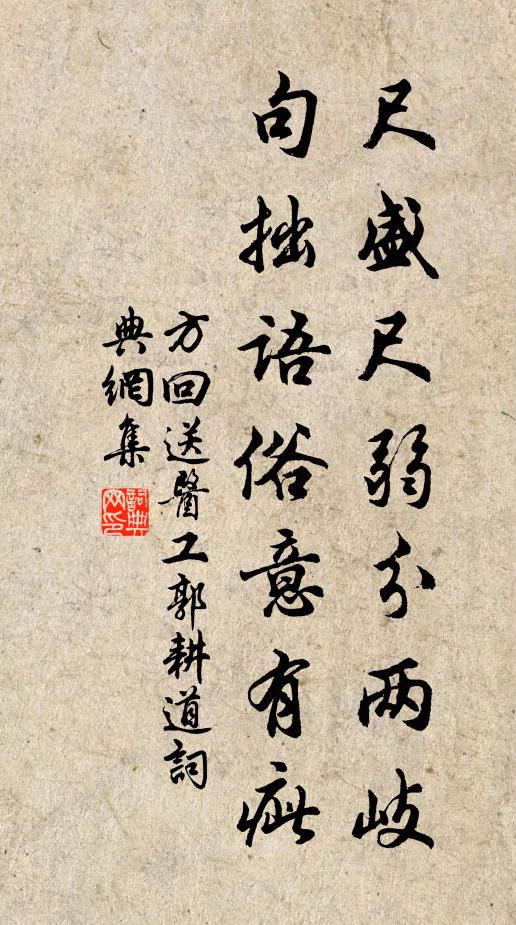 尺盛尺弱分两岐
句拙语俗意有疵
方回送医工郭耕道詞
典網集
詞典网印